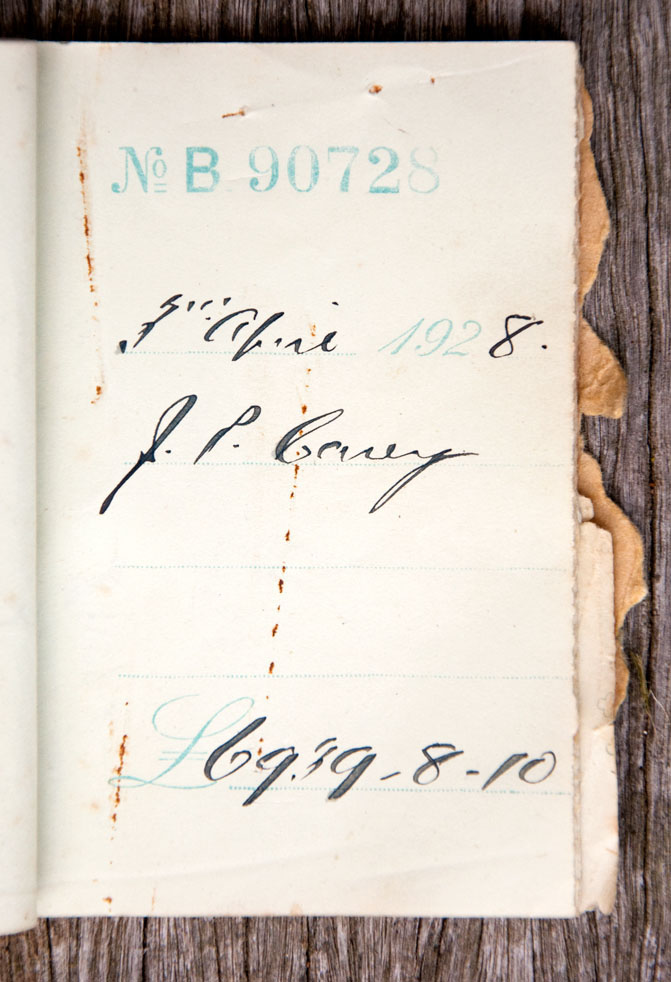 No B 90728
April 1928.
J. P. Carey
£6939-8-10